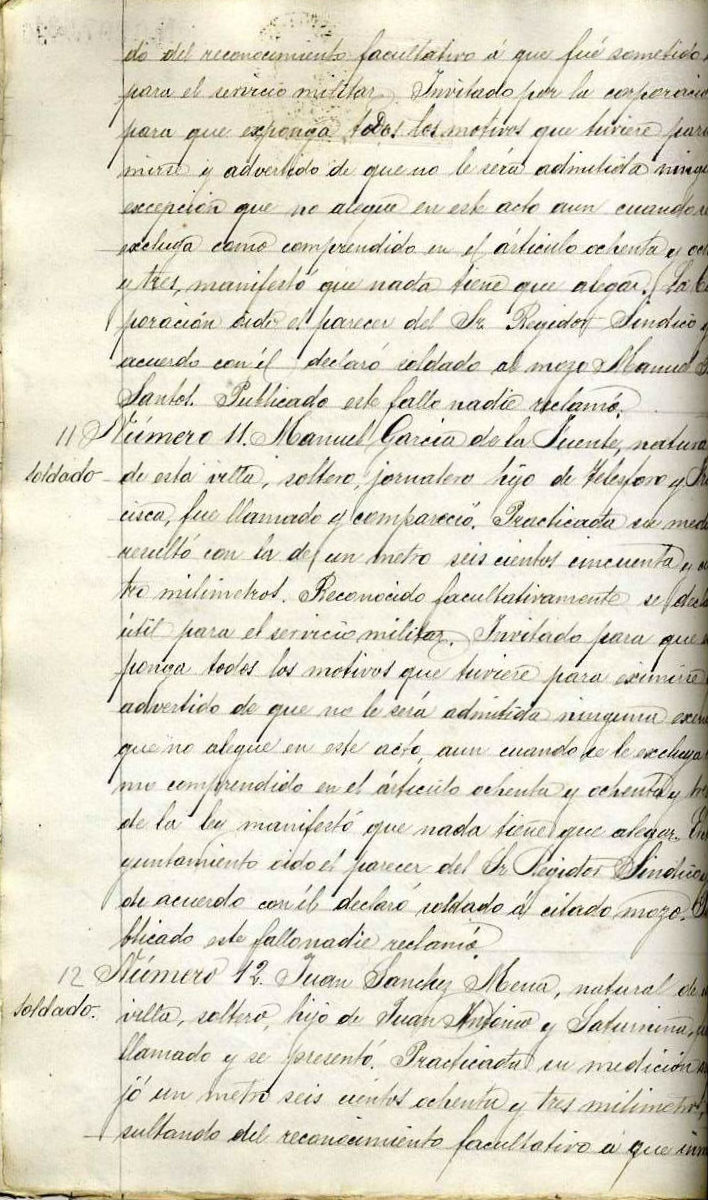 do del reconocimiento facultativo á que fué sometido
para el servicio militar. Invitado por la corporació
para que exponga todos los motivos que tuviere para
mirse y advertido de que no le será admitida ningu
excepción que no alegue en este acto aun cuando se
excluya como comprendido en el ártículo ochenta y och
y tres, manifestó que nada tiene que alegar. La Co
poración oido el parecer del Sr. Regidor Sindico y
acuerdo con él declaró soldado al mozo Manuel
Santos. Publicado este fallo nadie reclamó.
11 Número 11. Manuel Garcia de la Fuente, natura
soldado de esta villa, soltero, jornalero hijo de Telesforo y Fra
cisca, fue llamado y compareció. Practicada su medi
resultó con la de un metro seis cientos cincuenta y cu
tro milimetros. Reconocido facultativamente se decla
útil para el servicio militar. Invitado para que e
ponga todos los motivos que tuviere para eximirse
advertido de que no le será admitida ninguna exce
que no alegue en este acto, aun cuando se le excluya
mo comprendido en el ártículo ochenta y ochenta y tre
de la ley manifestó que nada tiene que alegar. El
yuntamiento oido el parecer del Sr Regidor Sindico
de acuerdo con él declaró soldado á citado mozo. Pu
blicado este fallo nadie reclamó
12 Número 12. Juan Sanchez Mena, natural de
soldado. villa, soltero, hijo de Juan Antonio y Saturnina,
llamado y se presentó. Practicada su medición
jó un metro seis cientos ochenta y tres milimetros,
sultando del reconocimiento facultativo á que inm